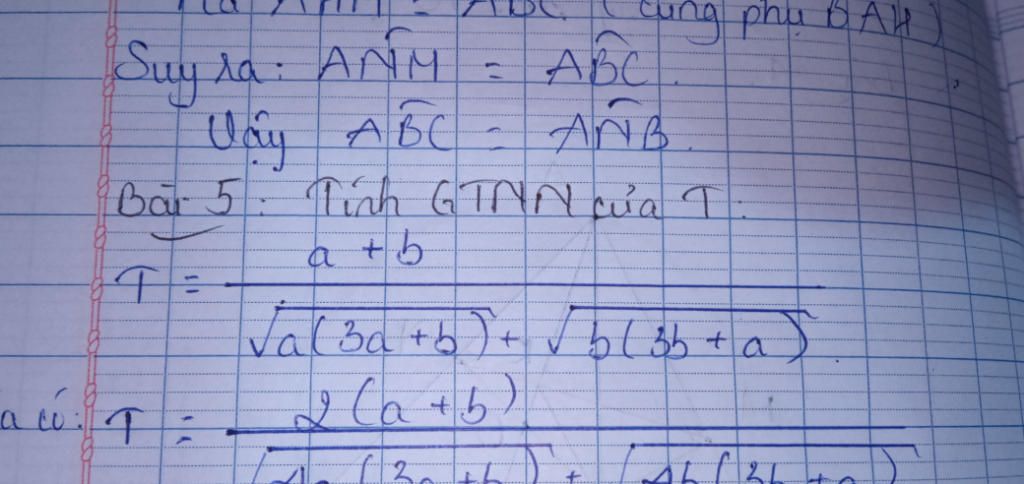 = ABC. (cùng phụ BAH)
Suy ra: ANM = ABC.
Vậy ABC = ANB.
Bài 5: Tính GTNN của T:
T = a + b / √a(3a+b) + √b(3b+a).
a có: T = 2(a+b) / √4a(3a+b) + √4b(3b+a)